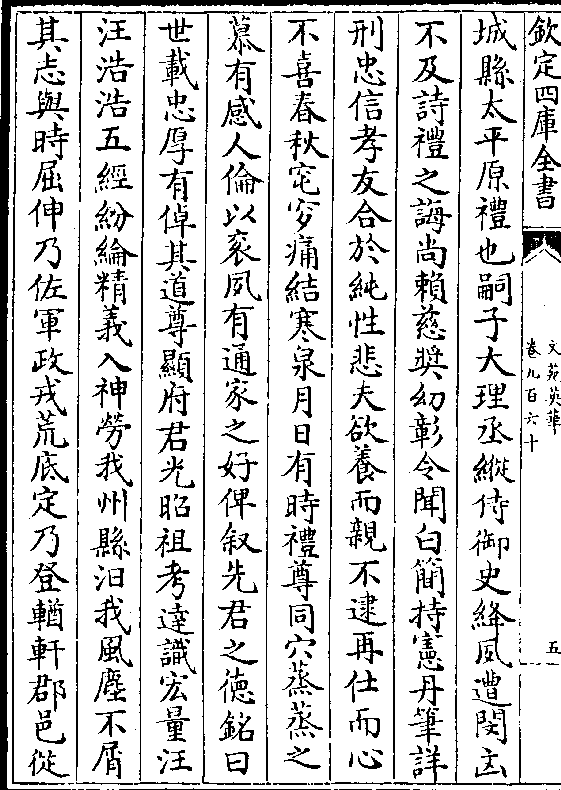 欽定四庫全書
文苑英華
卷九百六十
五
城縣太平原禮也嗣子大理丞縱侍御史絳夙遭閔凶
不及詩禮之誨尚賴慈奬幼彰令聞白簡持憲丹筆詳
刑忠信孝友合於純性悲夫欲養而親不逮再仕而心
不喜春秋窀穸痛結寒泉月日有時禮尊同穴蒸蒸之
慕有感人倫以衮夙有通家之好俾叙先君之徳銘曰
世載忠厚有倬其道尊顯府君光昭祖考達識宏量汪
汪浩浩五經紛綸精義入神勞我州縣汨我風塵不屑
其志與時屈伸乃佐軍政戎荒底定乃登輶軒郡邑從